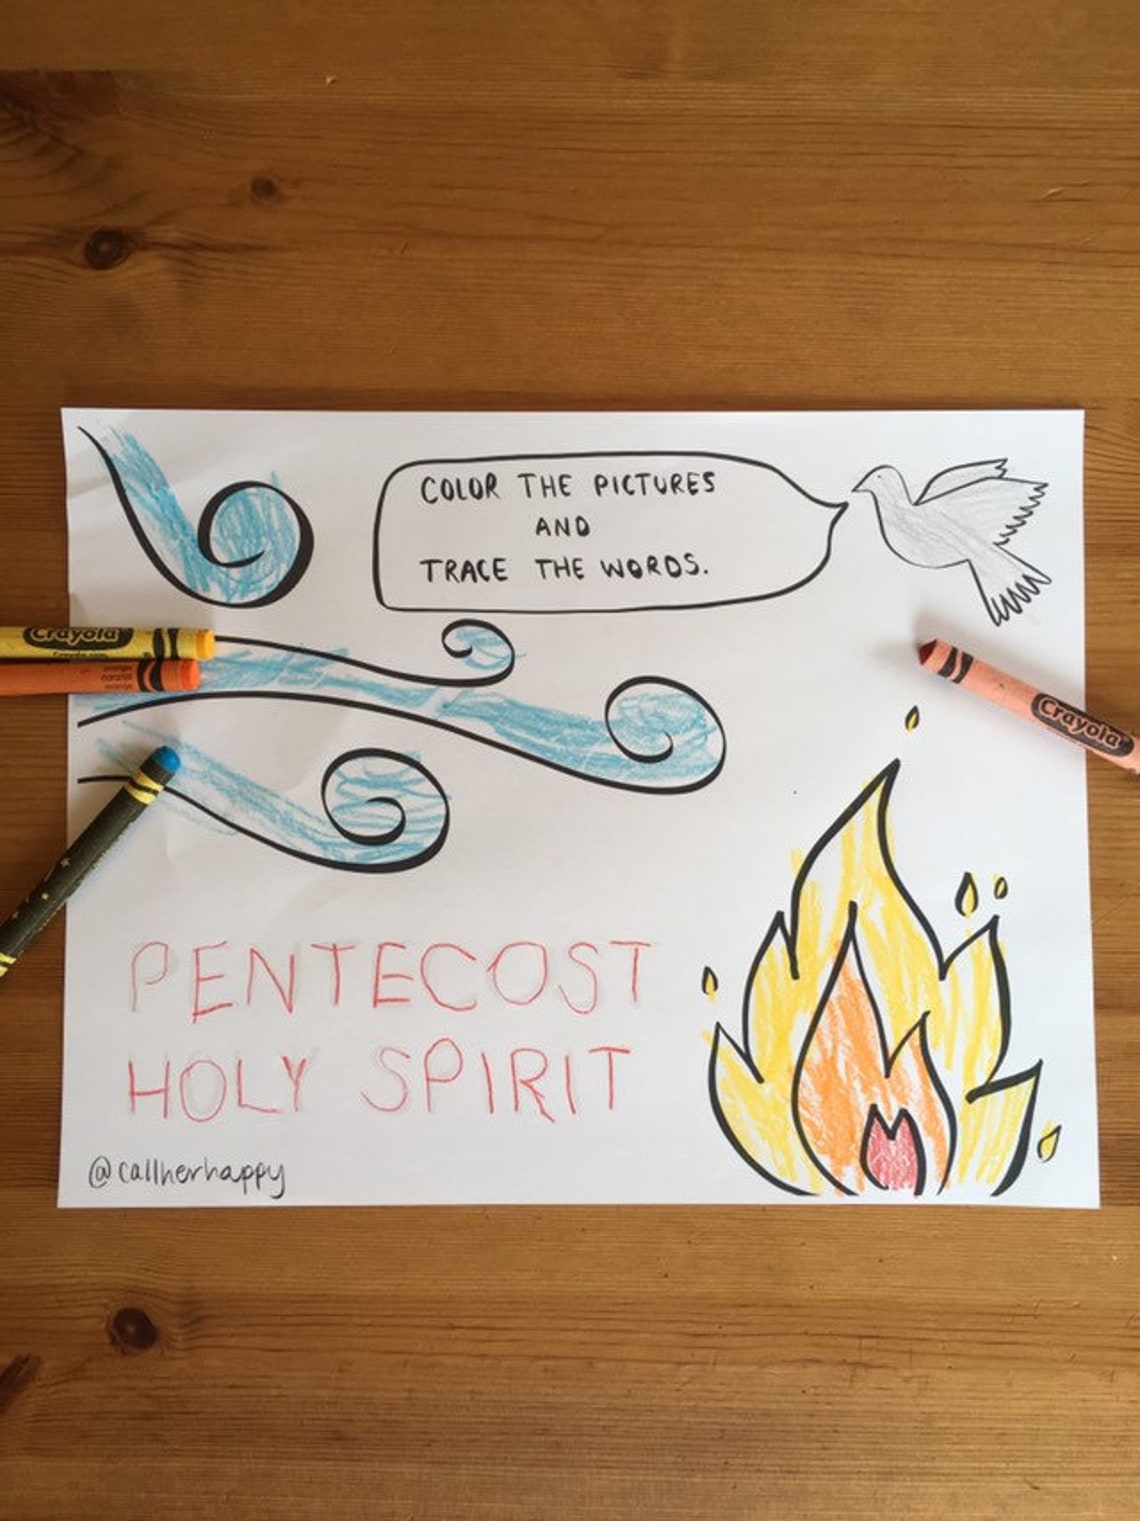 COLOR THE PICTURES
AND
TRACE THE WORDS.
Crayola
orange
Crayola
PENTECOST
HOLY SPIRIT
@callherhappy